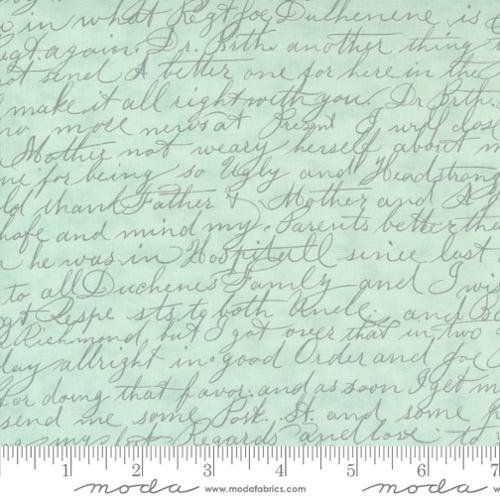 in what Regt Joe Duchenene is
Regt again. Dr. Brths another thing
not send A better one for here in the
make it all right with you. Dr Brther
no more news at Present I will close
Mother not weary herself about m
me for being so Ugly and Headstrong
ld thank Father & Mother and A
hafe and mind my Parents better tha
he was in Hospitall since last
to all Duchenes Family and I wis
Respe sts to both Uncle. and
Richmond but I got over that in two
day allright in good Order and Joe
for doing that favor. and as soon I get m
send me some Post. St. and some
my Regards and love to
1 2 3 4 5 6 7
moda www.modafabrics.com moda